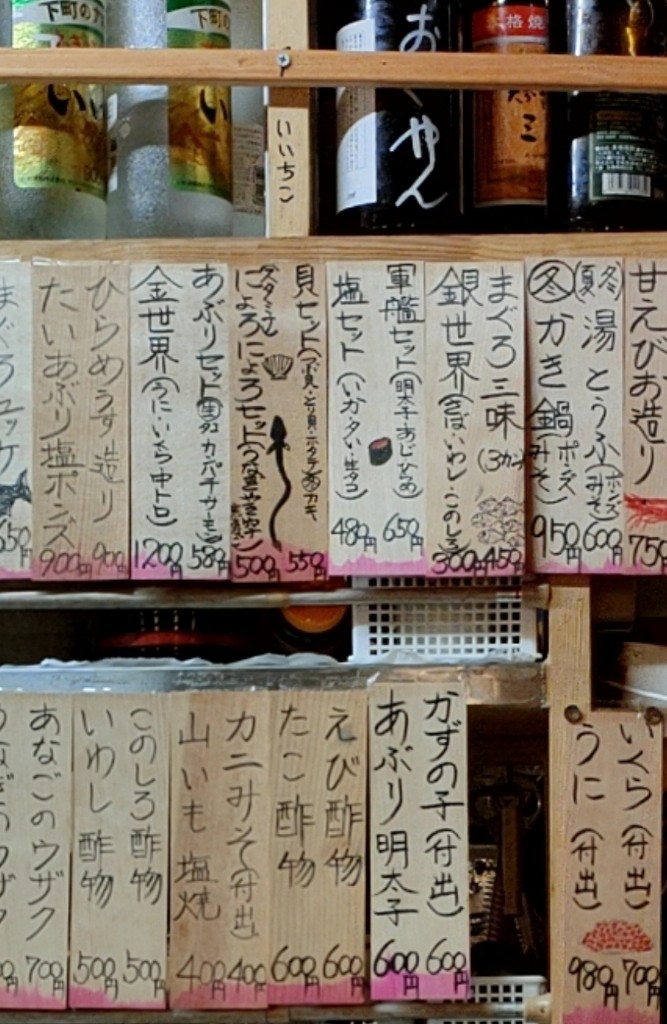 下町の
下町の
いい
いい
いいちこ
おくやん
本格焼
三
甘えびお造り
750
冬 湯とうふ(ポンズ みそ)
600円
冬 かき鍋(ポンズ みそ)
950円
まぐろ三味(3カン)
450円
銀世界(さば・いわし・このしろ)
300円
軍艦セット(明太子・あじ・ひらめ)
650円
塩セット(いか・タイ・生タコ)
480円
貝セット
550円
にょろにょろセット
500円
あぶりセット(生タコ カンパチ サーモン)
580円
金世界(うに・いくら・中トロ)
1200円
ひらめうす造り
900円
たいあぶり塩ポンズ
900円
まぐろユッケ
650円
いくら(付出)
700円
うに(付出)
980円
かずの子(付出)
600円
あぶり明太子
600円
えび酢物
600円
たこ酢物
600円
カニみそ(付出)
400円
山いも塩焼
400円
このしろ酢物
500円
いわし酢物
500円
あなごのウザク
700円
うなぎのウザク